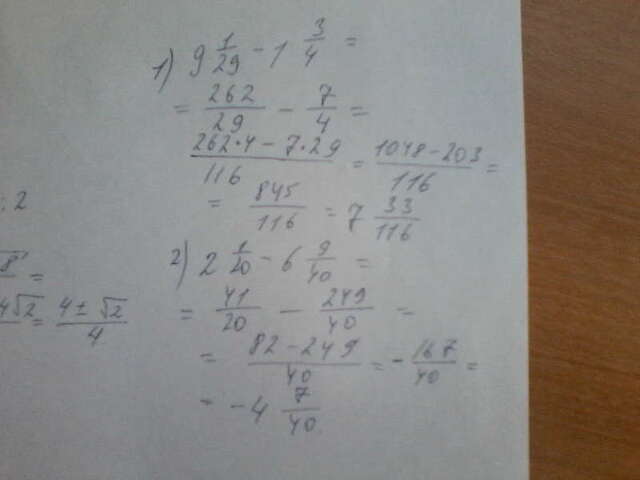 1) 9 1/29 - 1 3/4 =
= 262/29 - 7/4 =
(262·4 - 7·29)/116 = (1048 - 203)/116 =
= 845/116 = 7 33/116
2) 2 1/20 - 6 9/40 =
= 41/20 - 249/40 =
= (82 - 249)/40 = - 167/40 =
= -4 7/40
: 2
√8 =
4√2 = (4 ± √2)/4